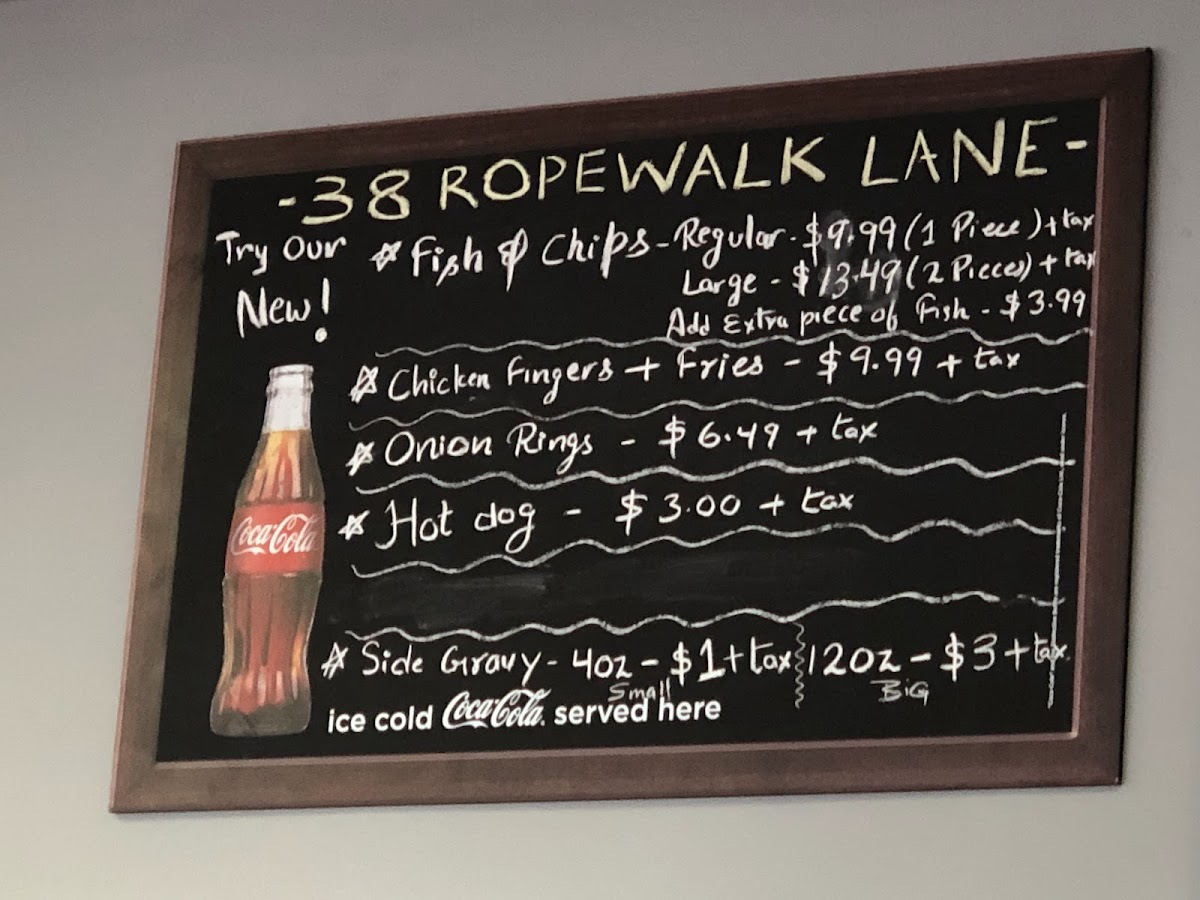 -38 ROPEWALK LANE-
Try Our
New!
Fish & Chips - Regular - $9.99 (1 Piece) + tax
Large - $13.49 (2 Pieces) + tax
Add Extra piece of Fish - $3.99
Chicken Fingers + Fries - $9.99 + tax
Onion Rings - $6.49 + tax
Hot dog - $3.00 + tax
Coca-Cola
Side Gravy - 4oz - $1 + tax 12oz - $3 + tax
Small BiG
ice cold Coca-Cola served here